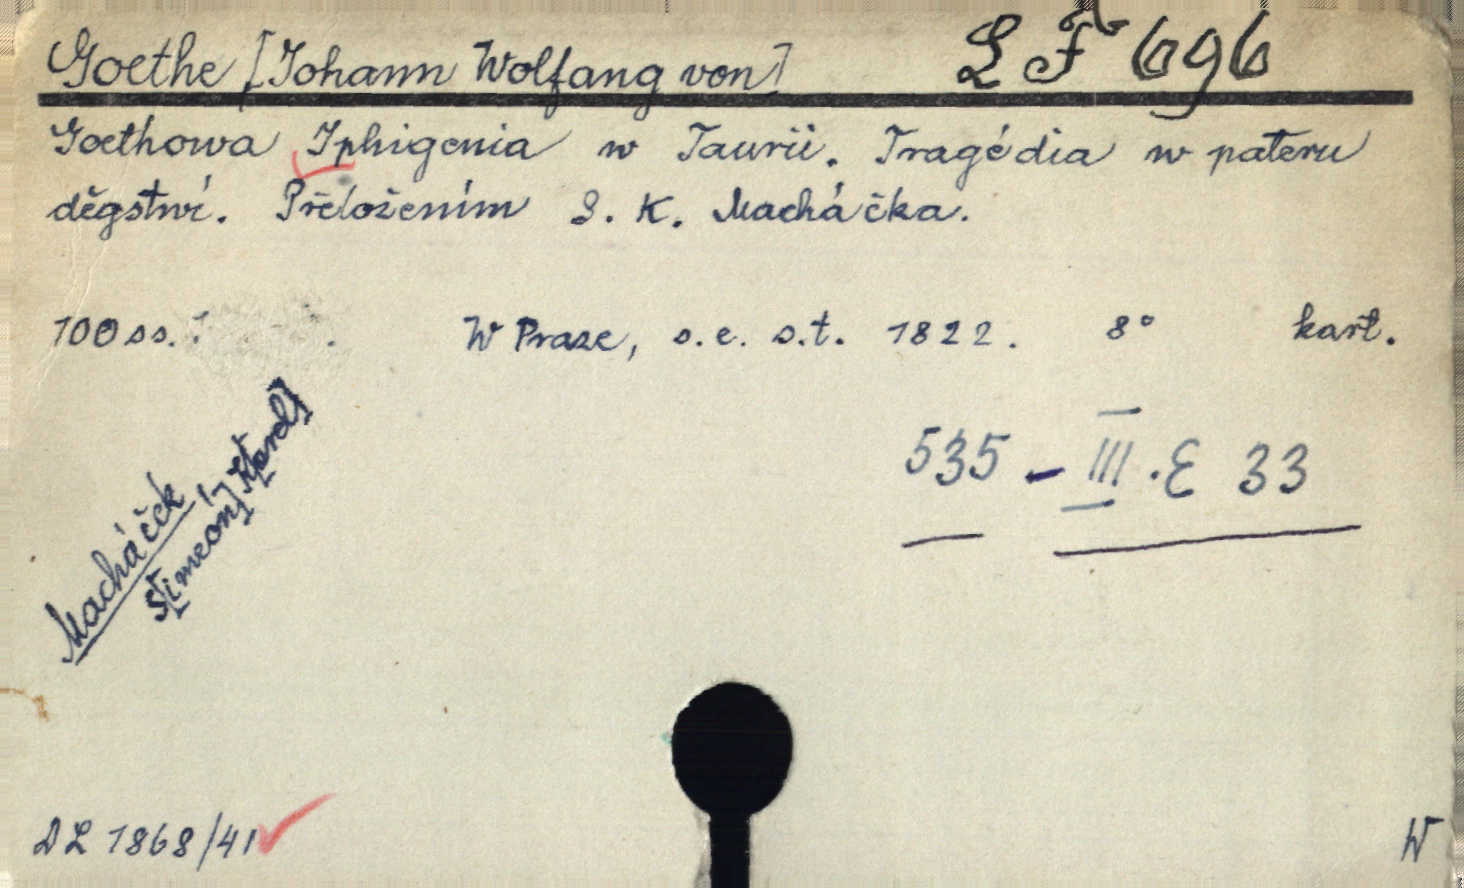 Goethe [Johann Wolfang von] LF 696
Goethowa Iphigenia w Taurii. Tragédia w pateru
děgstwí. Přeložením S. K. Macháčka.
100 ss. W Praze, s. e. s. t. 1822. 8° kart.
535 - III. E 33
Macháček
S[imeon] K[arel]
DL 1868/41
W